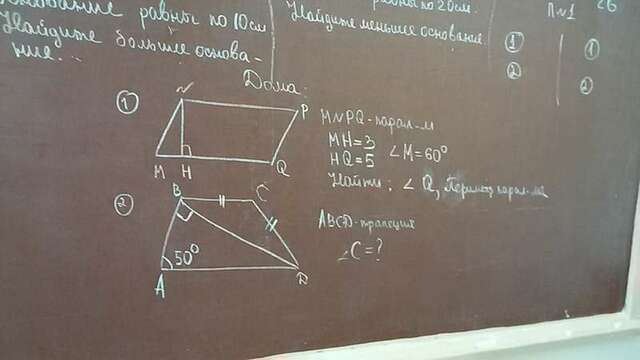 основание равны по 10см
Найдите больше основа-
ние...
равны по 20см.
Найдите меньшее основание
П№1 26
1 1
2 2
Дома:
1
N
P
M H Q
MNPQ-парал-м
MH=3
HQ=5 ∠M=60°
Найти: ∠Q, Периметр парал-ма
2
B C
50°
A D
ABCD-трапеция
∠C=?